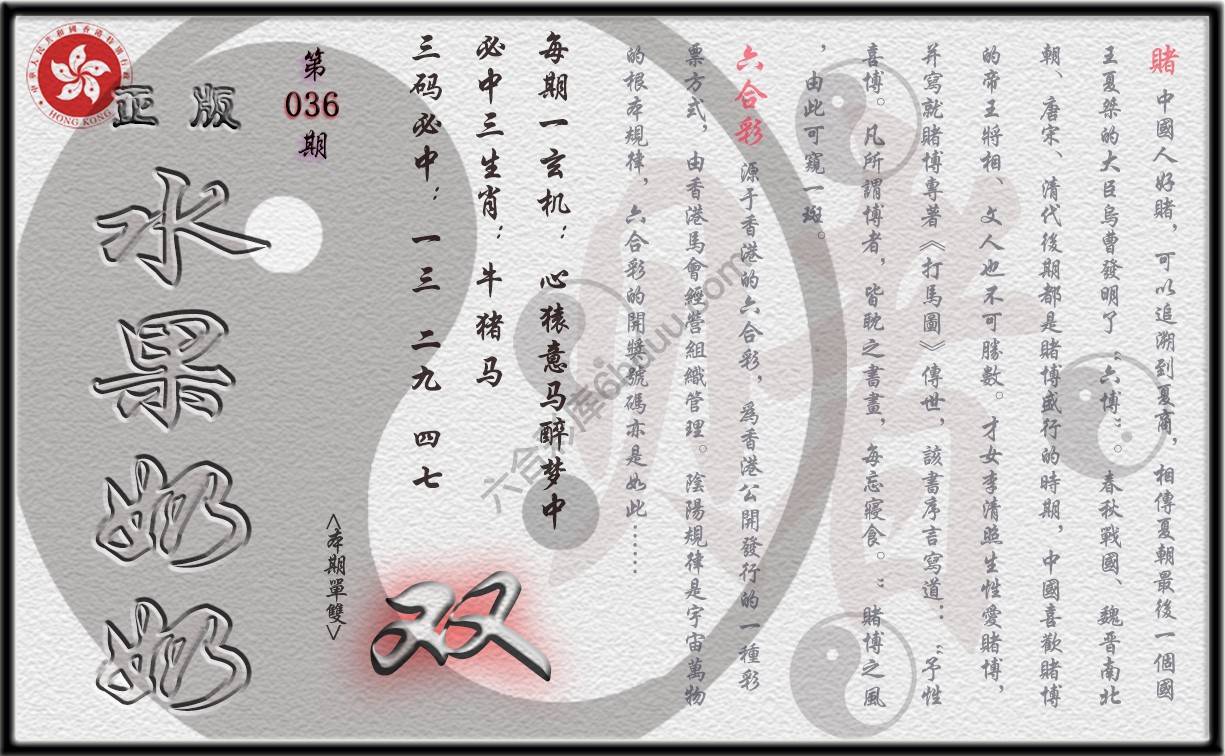 賭 中國人好賭，可以追溯到夏商，相傳夏朝最後一個國
王夏桀的大臣烏曹發明了“六博”。春秋戰國、魏晉南北
朝、唐宋、清代後期都是賭博盛行的時期，中國喜歡賭博
的帝王將相、文人也不可勝數。才女李清照生性愛賭博，
并寫就賭博專著《打馬圖》傳世，該書序言寫道：“予性
喜博。凡所謂博者，皆耽之書畫，每忘寢食。”賭博之風
，由此可窺一斑。
六合彩 源于香港的六合彩，為香港公開發行的一種彩
票方式，由香港馬會經營組織管理。陰陽規律是宇宙萬物
的根本規律，六合彩的開獎號碼亦是如此……
每期一玄机：心猿意马醉梦中
必中三生肖：牛猪马
三码必中：一三 二九 四七
第
036
期
<本期單雙>
双
正版
水果奶奶
HONG KONG